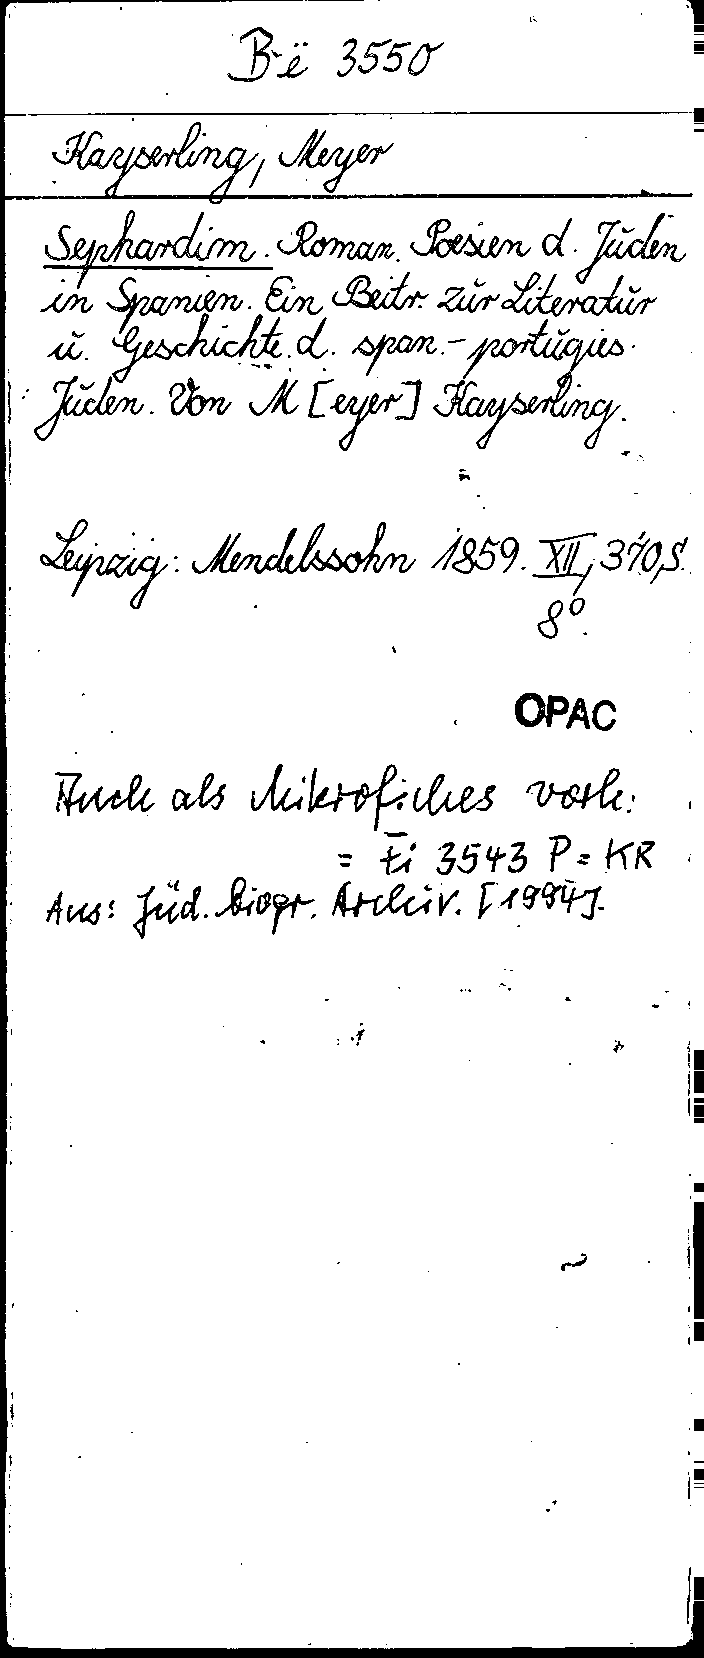 B-ë 3550
Kayserling, Meyer
Sephardim. Roman. Poesien d. Juden
in Spanien. Ein Beitr. zur Literatur
u. Geschichte d. span.-portugies.
Juden. Von M[eyer] Kayserling.
Leipzig: Mendelssohn 1859. XII, 370, S.
8°.
OPAC
Auch als Mikrofiches vorh.:
= Ei 3543 P = KR
Aus: Jüd. biogr. Archiv. [1994].